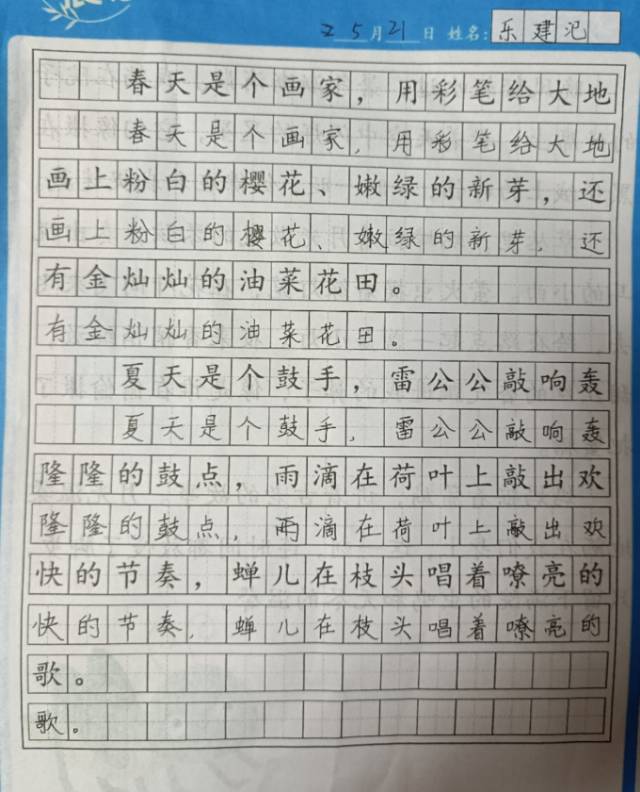 5月21日 姓名:乐建汜
春天是个画家，用彩笔给大地
春天是个画家，用彩笔给大地
画上粉白的樱花、嫩绿的新芽，还
画上粉白的樱花、嫩绿的新芽，还
有金灿灿的油菜花田。
有金灿灿的油菜花田。
夏天是个鼓手，雷公公敲响轰
夏天是个鼓手，雷公公敲响轰
隆隆的鼓点，雨滴在荷叶上敲出欢
隆隆的鼓点，雨滴在荷叶上敲出欢
快的节奏，蝉儿在枝头唱着嘹亮的
快的节奏，蝉儿在枝头唱着嘹亮的
歌。
歌。